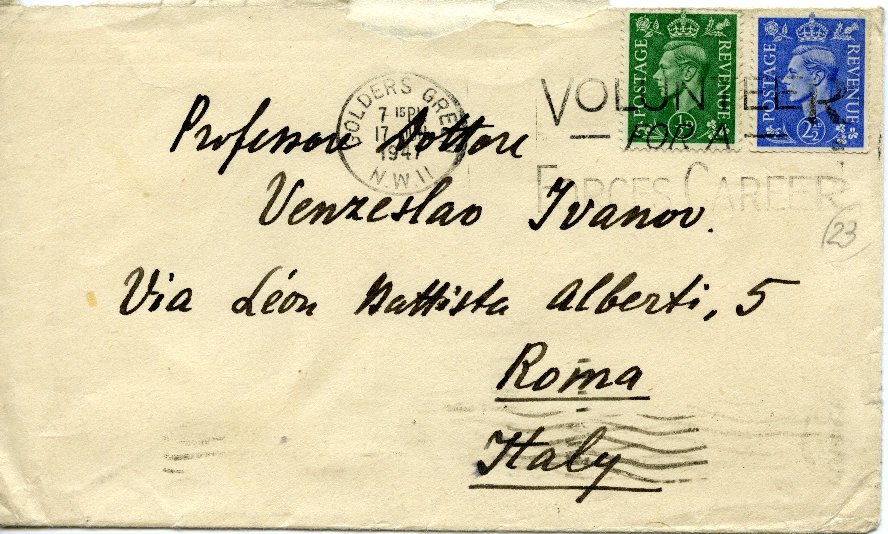 POSTAGE REVENUE
½D
POSTAGE REVENUE
2½D
GOLDERS GREEN
7 15 PM
17
1947
N.W.11
VOLUNTEER
FOR A
FORCES CAREER
Professore Dottore
Venzeslao Ivanov.
Via Léon Battista Alberti, 5
Roma
Italy
23